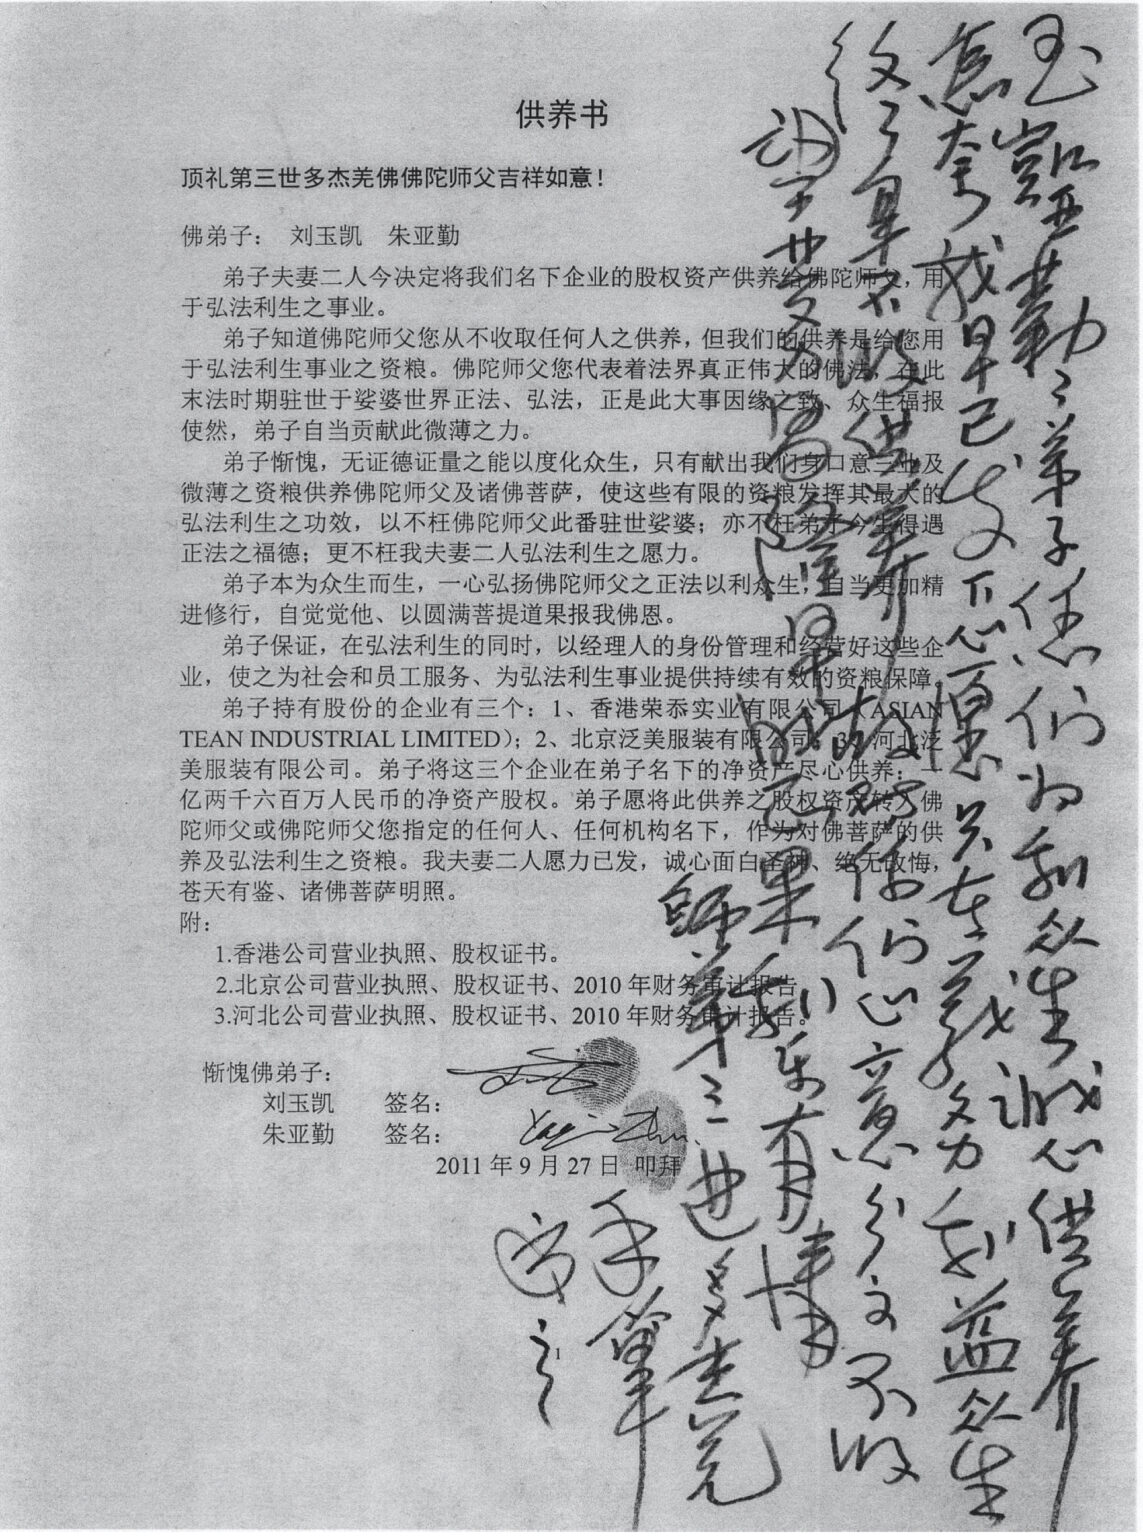 供养书
顶礼第三世多杰羌佛佛陀师父吉祥如意！
佛弟子： 刘玉凯 朱亚勤
弟子夫妻二人今决定将我们名下企业的股权资产供养给佛陀师父，用
于弘法利生之事业。
弟子知道佛陀师父您从不收取任何人之供养，但我们的供养是给您用
于弘法利生事业之资粮。佛陀师父您代表着法界真正伟大的佛法，在此
末法时期驻世于娑婆世界正法、弘法，正是此大事因缘之致、众生福报
使然，弟子自当贡献此微薄之力。
弟子惭愧，无证德证量之能以度化众生，只有献出我们身口意三业及
微薄之资粮供养佛陀师父及诸佛菩萨，使这些有限的资粮发挥其最大的
弘法利生之功效，以不枉佛陀师父此番驻世娑婆；亦不枉弟子今生得遇
正法之福德；更不枉我夫妻二人弘法利生之愿力。
弟子本为众生而生，一心弘扬佛陀师父之正法以利众生，自当更加精
进修行，自觉觉他、以圆满菩提道果报我佛恩。
弟子保证，在弘法利生的同时，以经理人的身份管理和经营好这些企
业，使之为社会和员工服务、为弘法利生事业提供持续有效的资粮保障。
弟子持有股份的企业有三个：1、香港荣忝实业有限公司（ASIAN
TEAN INDUSTRIAL LIMITED）；2、北京泛美服装有限公司；3、河北泛
美服装有限公司。弟子将这三个企业在弟子名下的净资产尽心供养：一
亿两千六百万人民币的净资产股权。弟子愿将此供养之股权资产转入佛
陀师父或佛陀师父您指定的任何人、任何机构名下，作为对佛菩萨的供
养及弘法利生之资粮。我夫妻二人愿力已发，诚心面白圣神、绝无改悔，
苍天有鉴、诸佛菩萨明照。
附：
1.香港公司营业执照、股权证书。
2.北京公司营业执照、股权证书、2010 年财务审计报告
3.河北公司营业执照、股权证书、2010 年财务审计报告。
惭愧佛弟子：
刘玉凯 签名：
朱亚勤 签名： Yaqin Zhu
2011 年 9 月 27 日 叩拜
1
玉凯亚勤二弟子你们为利众生诚心供养
我早已发下心愿只在义务利益众生
不收供养 你们心意分文不收
正果利乐有情
第三世多杰羌